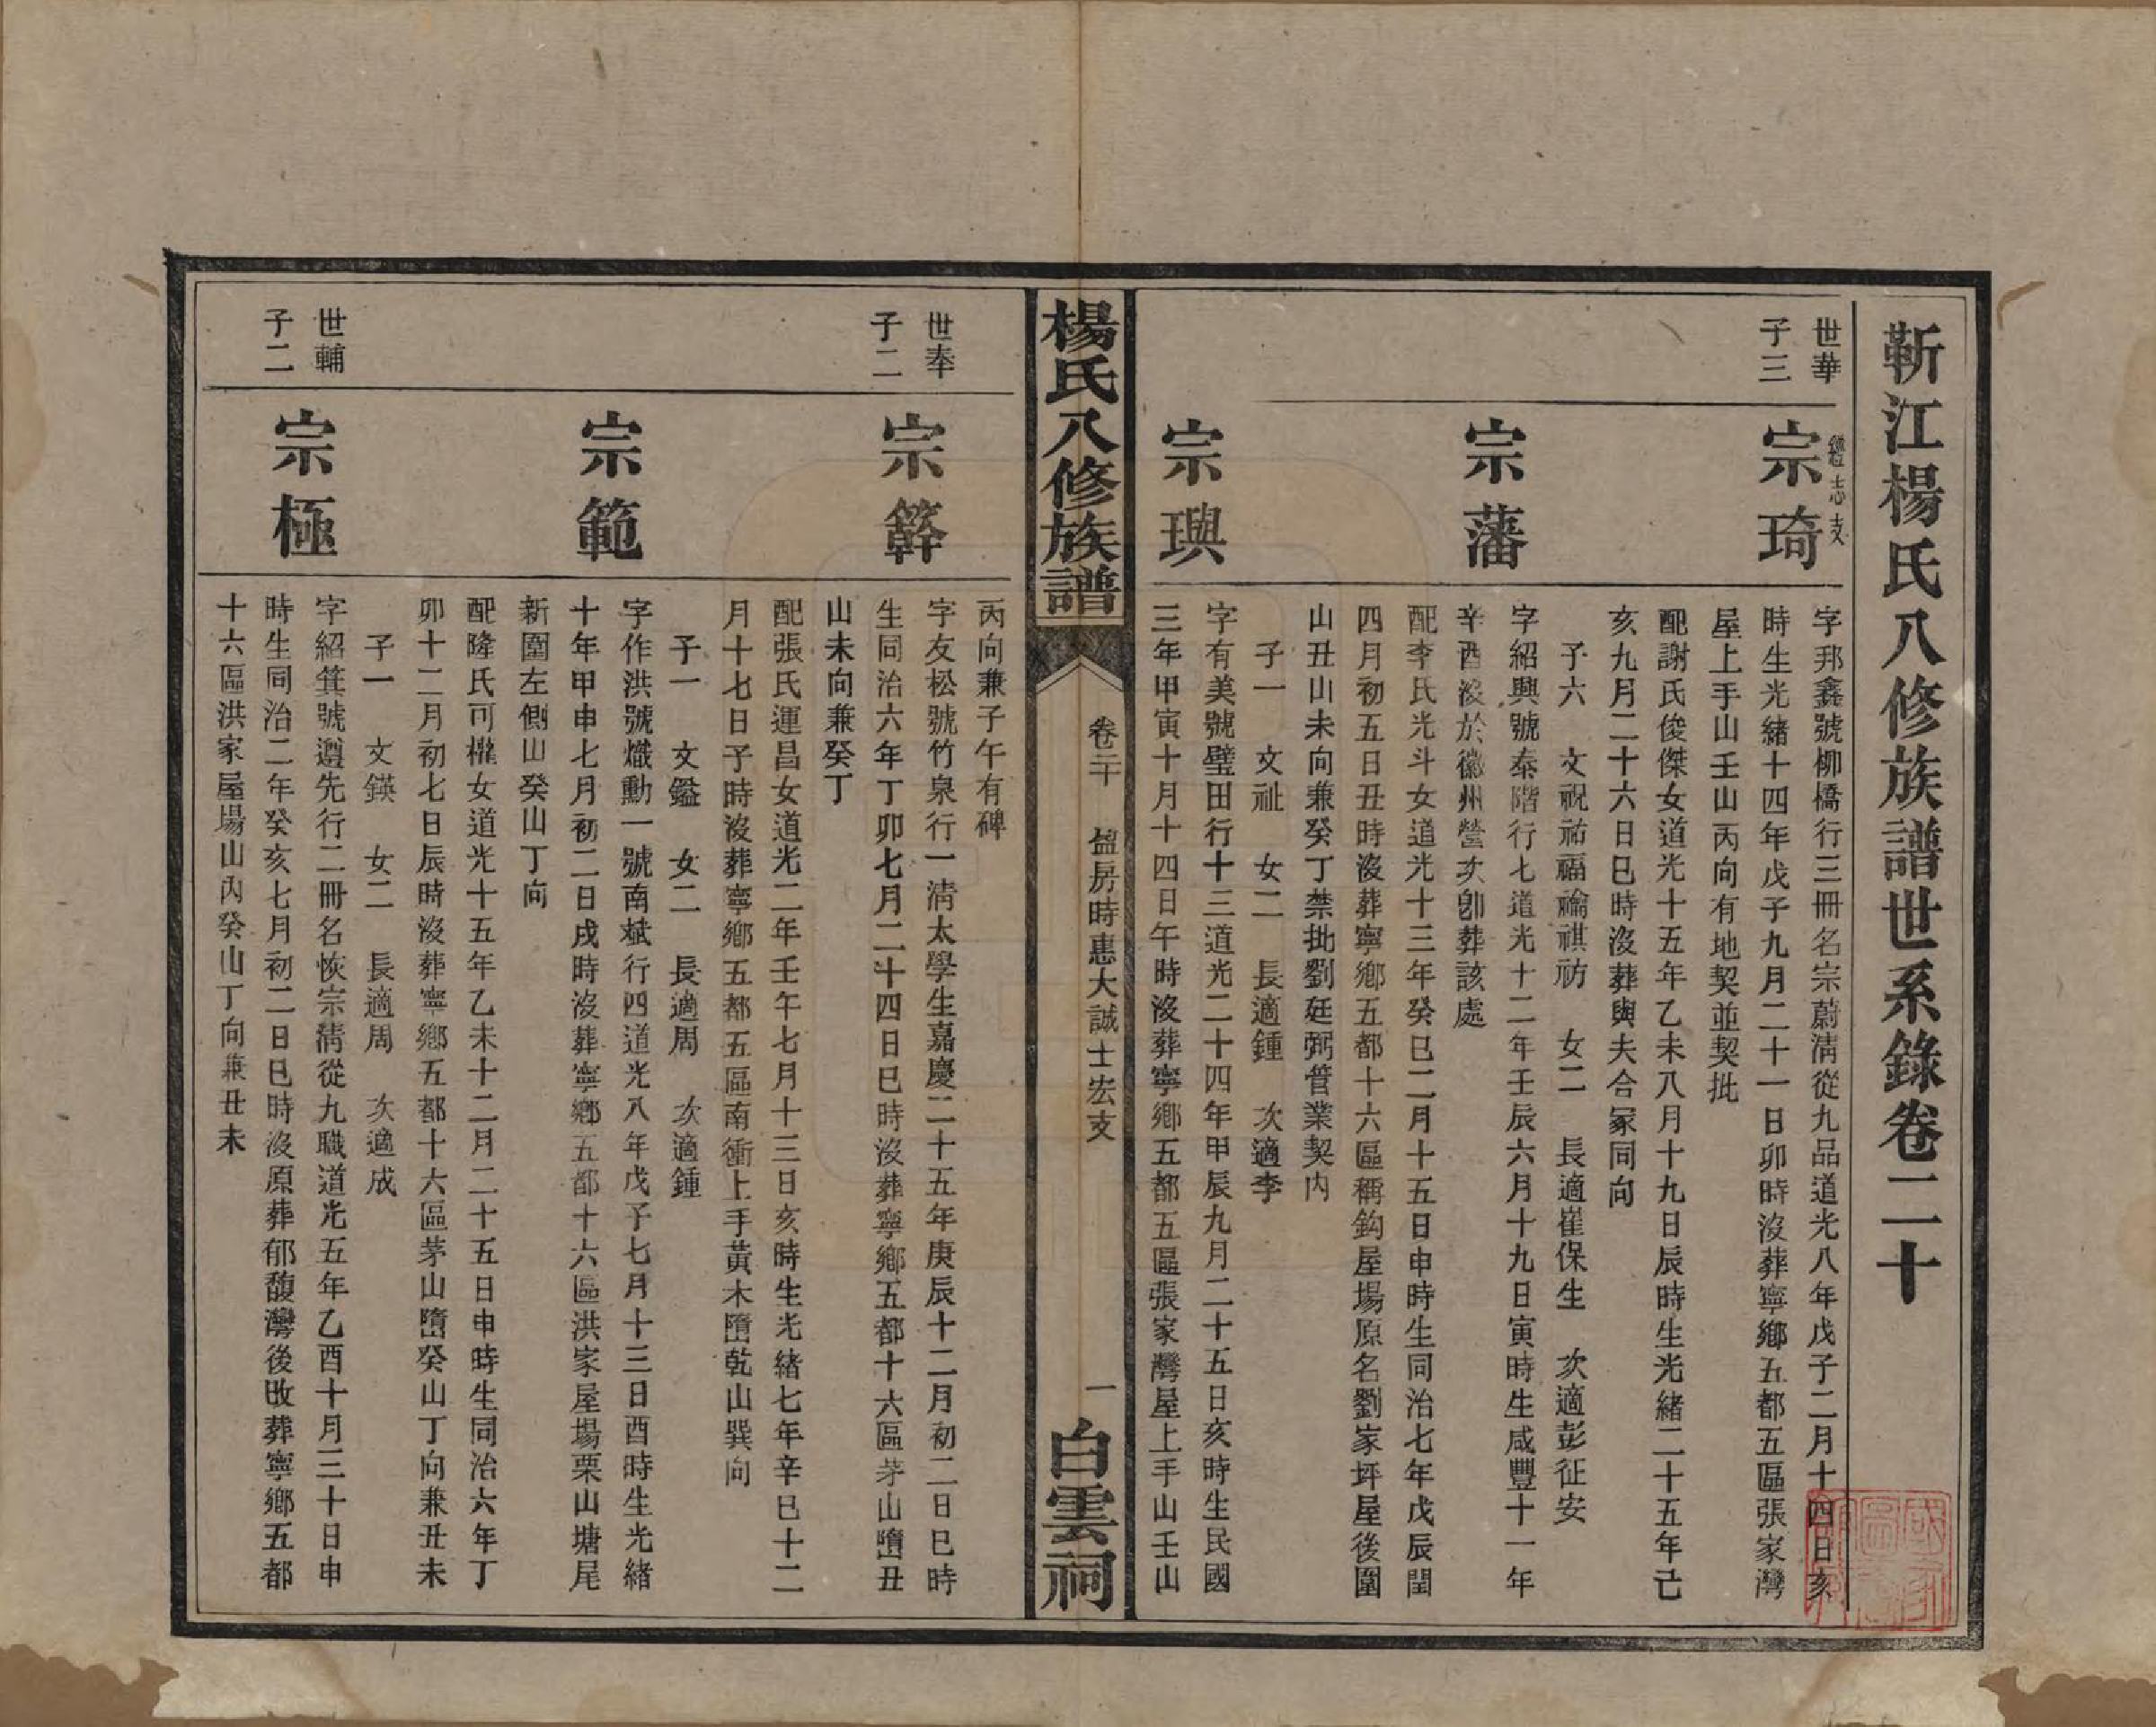 靳江楊氏八修族譜世系錄卷二十
世華
子三
鐙志支
宗琦
字邦鑫號柳橋行三冊名宗蔚清從九品道光八年戊子二月十四日亥
時生光緒十四年戊子九月二十一日卯時沒葬寧鄉五都五區張家灣
屋上手山壬山丙向有地契並契批
配謝氏俊傑女道光十五年乙未八月十九日辰時生光緒二十五年己
亥九月二十六日巳時沒葬與夫合冢同向
子六　文祝祐福禴祺祊　女二　長適崔保生　次適彭征安
宗藩
字紹興號泰階行七道光十二年壬辰六月十九日寅時生咸豐十一年
辛酉沒於徽州營次卽葬該處
配李氏光斗女道光十三年癸巳二月十五日申時生同治七年戊辰閏
四月初五日丑時沒葬寧鄉五都十六區稱鈎屋場原名劉家坪屋後圍
山丑山未向兼癸丁禁批劉廷弼管業契內
子一　文祉　女二　長適鍾　次適李
宗璵
字有美號璧田行十三道光二十四年甲辰九月二十五日亥時生民國
三年甲寅十月十四日午時沒葬寧鄉五都五區張家灣屋上手山壬山
楊氏八修族譜
卷二十　盈房時惠大誠士宏支
一
白雲祠
丙向兼子午有碑
世奉
子二
宗簳
字友松號竹泉行一清太學生嘉慶二十五年庚辰十二月初二日巳時
生同治六年丁卯七月二十四日巳時沒葬寧鄉五都十六區茅山墮丑
山未向兼癸丁
配張氏運昌女道光二年壬午七月十三日亥時生光緒七年辛巳十二
月十七日子時沒葬寧鄉五都五區南衝上手黃木墮乾山巽向
子一　文鑑　女二　長適周　次適鍾
宗範
字作洪號熾勳一號南斌行四道光八年戊子七月十三日酉時生光緒
十年甲申七月初二日戌時沒葬寧鄉五都十六區洪家屋場栗山塘尾
新圍左側山癸山丁向
配隆氏可櫳女道光十五年乙未十二月二十五日申時生同治六年丁
卯十二月初七日辰時沒葬寧鄉五都十六區茅山墮癸山丁向兼丑未
子一　文鍈　女二　長適周　次適成
世輔
子二
宗極
字紹箕號遵先行二冊名恢宗清從九職道光五年乙酉十月三十日申
時生同治二年癸亥七月初二日巳時沒原葬郁馥灣後改葬寧鄉五都
十六區洪家屋場山內癸山丁向兼丑未